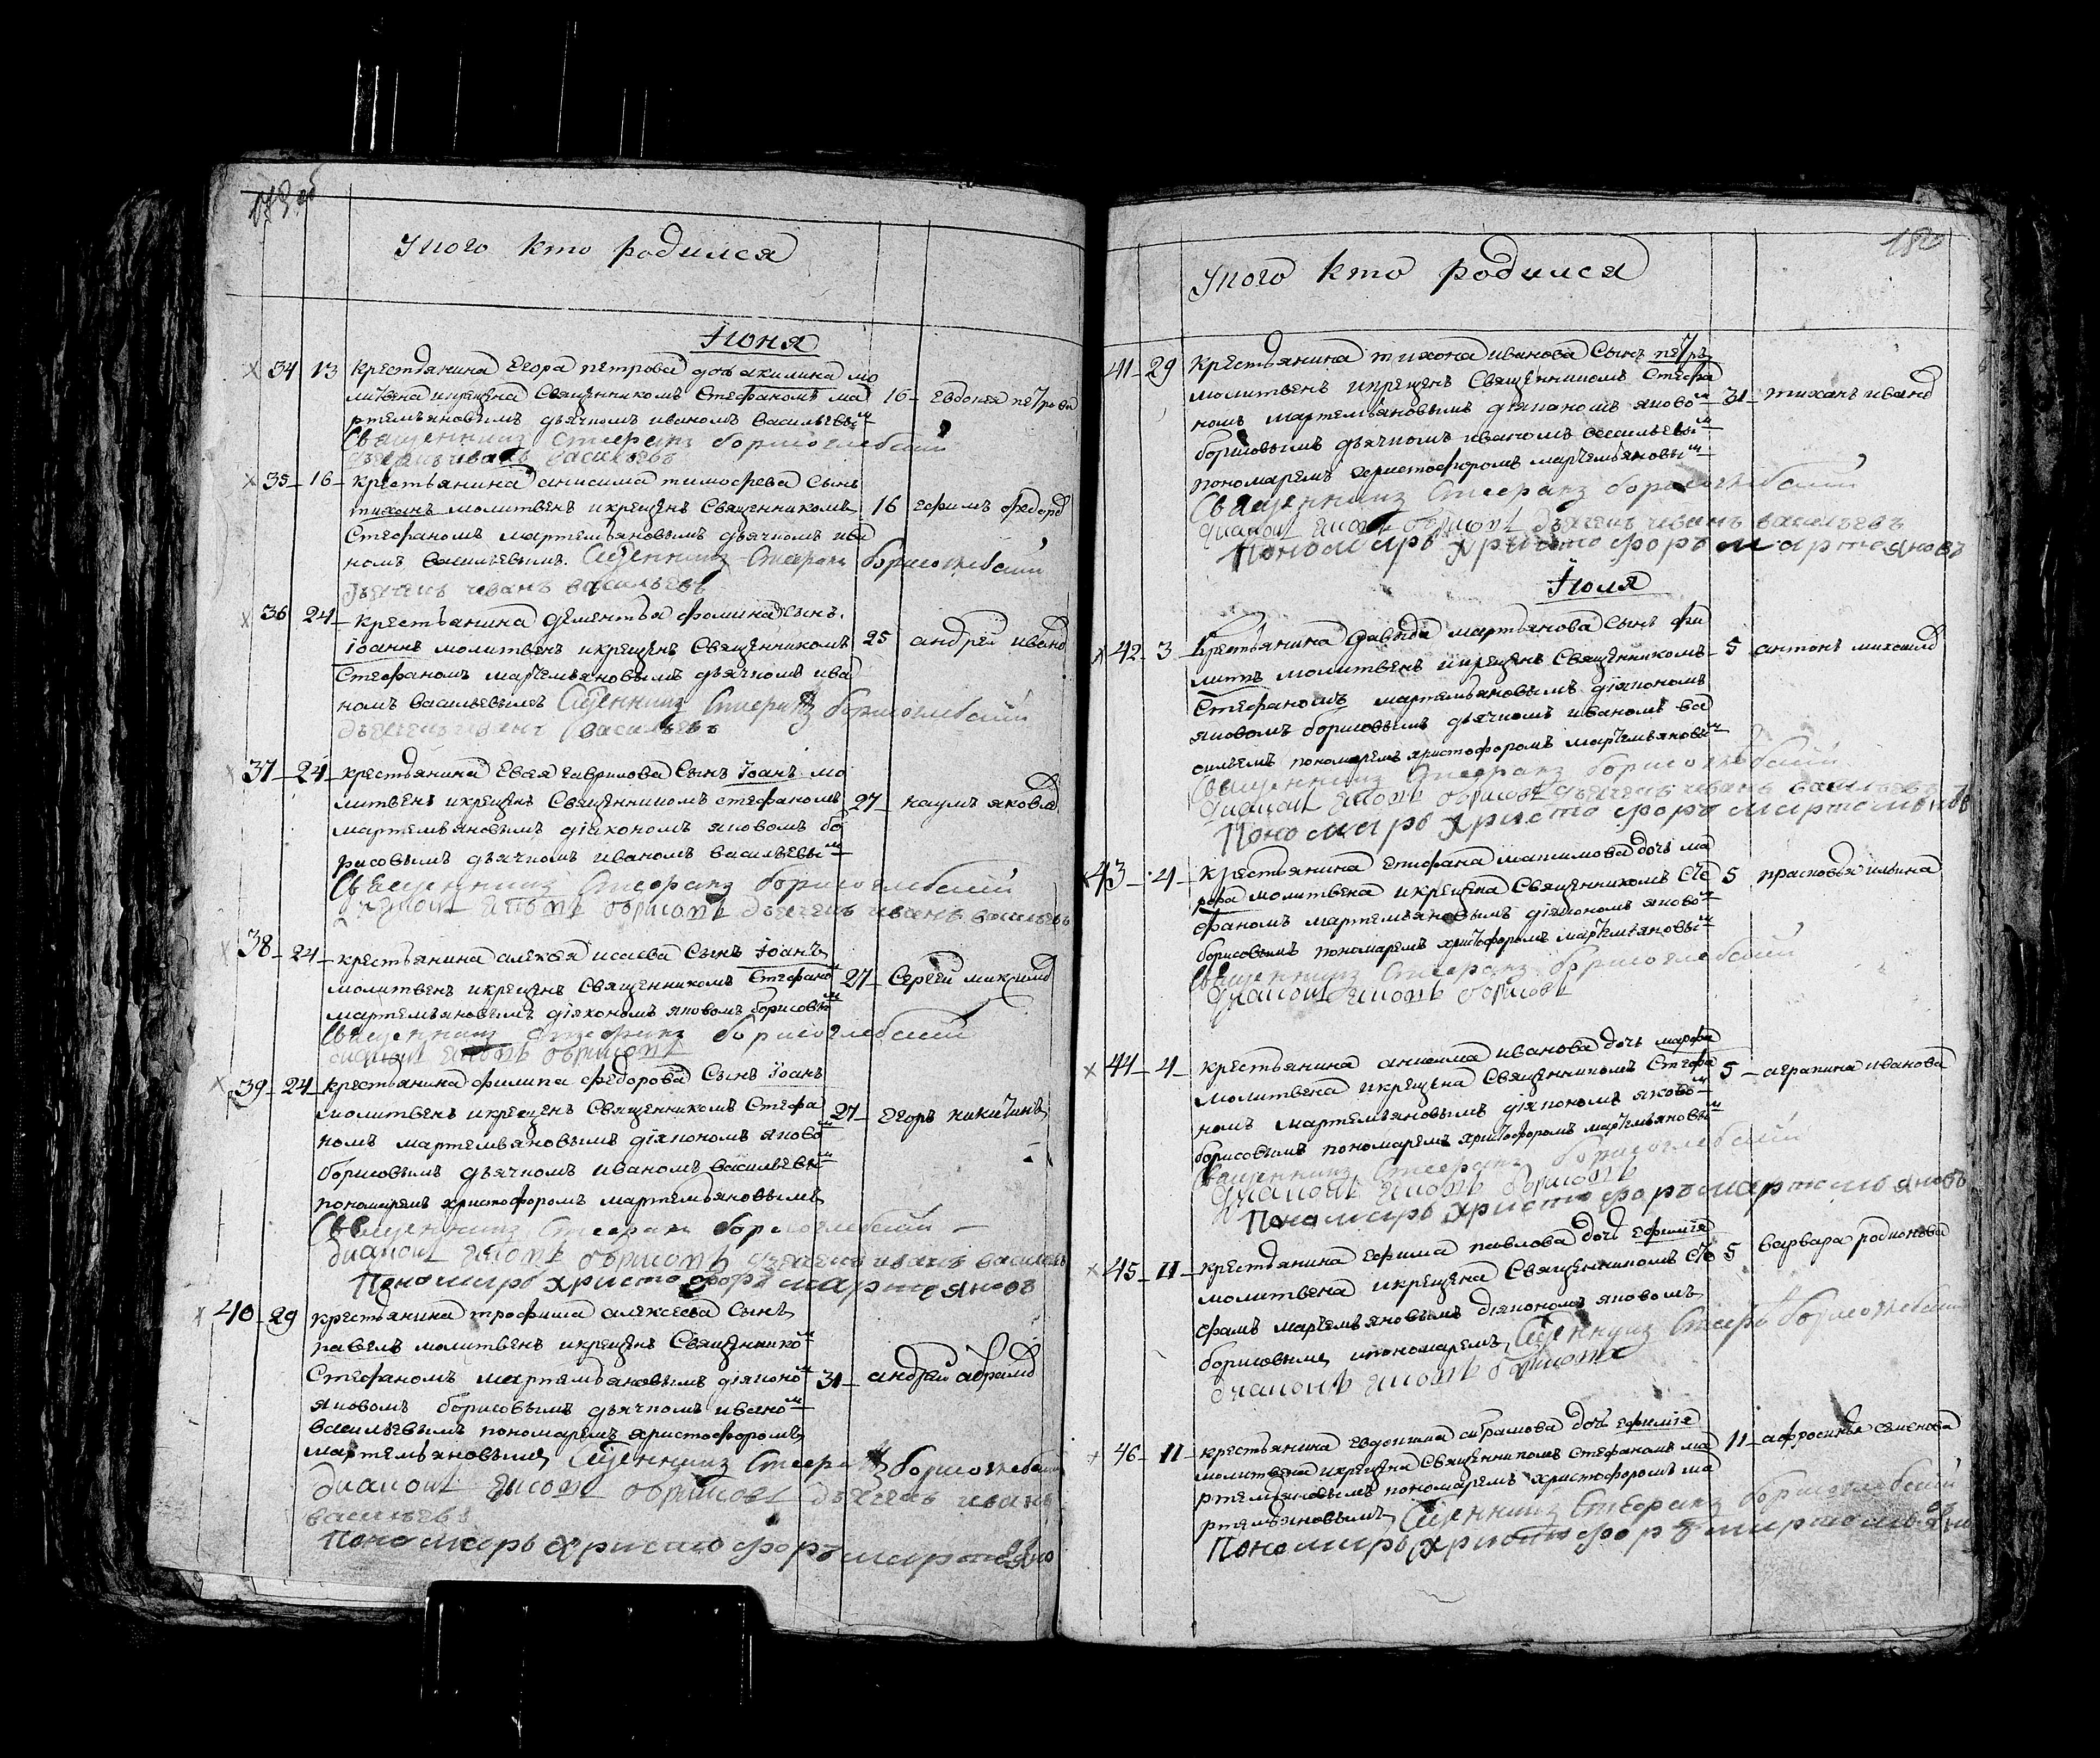 У кого кто родился
Июня
34 13 крестьянина Егора петрова дочь акилина мо
литвена икрещена Священникомъ Стефаномъ ма 16 Евдокея петрова
ртемьяновымъ дьячкомъ иваномъ васильевым
Священникъ Стефанъ борисоглебский
дьячекъ иванъ васильевъ
35 16 крестьянина анисима тимофеева Сынъ
тихонъ молитвенъ икрещенъ Священникомъ 16 ефимъ федоров
Стефаномъ мартемьяновымъ дьячкомъ ива
номъ васильевымъ. Священникъ Стефанъ борисоглебский
дьячекъ иванъ васильевъ
36 24 крестьянина дементья фомина Сынъ
іоаннъ молитвенъ икрещенъ Священникомъ 25 андрей иванов
Стефаномъ мартемьяновымъ дьячкомъ ива
номъ васильевымъ Священникъ Стефанъ борисоглебский
дьячекъ иванъ васильевъ
37 24 крестьянина Евсея гаврилова Сынъ іоанъ мо
литвенъ икрещенъ Священникомъ стефаномъ 27 наумъ яковлев
мартемьяновымъ діякономъ яковомъ бо
рисовымъ дьячкомъ иваномъ васильевым
Священникъ Стефанъ борисоглебский
диаконъ яковъ борисовъ дьячекъ иванъ васильевъ
38 24 крестьянина алексея исаева Сынъ іоанъ
молитвенъ икрещенъ Священникомъ Стефаном 27 Сергей
мартемьяновымъ діякономъ яковомъ борисовым
Священникъ Стефанъ борисоглебский
диаконъ яковъ борисовъ
39 24 крестьянина филипа федорова Сынъ іоанъ
молитвенъ икрещенъ Священникомъ Стефа 27 Егоръ никитинъ
номъ мартемьяновымъ діякономъ яковом
борисовымъ дьячкомъ иваномъ васильевым
пономаремъ христофоромъ мартемьяновымъ
Священникъ Стефанъ борисоглебский
диаконъ яковъ борисовъ дьячекъ иванъ васильевъ
Пономарь христофоръ мартеяновъ
40 29 крестьянина трофима алексеева Сынъ
павелъ молитвенъ икрещенъ Священником
Стефаномъ мартемьяновымъ діяконом 31 андрей абрамов
яковомъ борисовымъ дьячкомъ иваном
васильевымъ пономаремъ христофоромъ
мартемьяновымъ Священникъ Стефанъ борисоглебский
диаконъ яковъ борисовъ дьячекъ иванъ
васильевъ
Пономарь христофоръ мартеяно
180
У кого кто родился
41 29 крестьянина тихона иванова Сынъ петръ
молитвенъ икрещенъ Священникомъ Стефа
номъ мартемьяновымъ діякономъ яковом 31 тиханъ иванов
борисовымъ дьячкомъ иваномъ васильевым
пономаремъ христофоромъ мартемьяновым
Священникъ Стефанъ борисоглебский
диаконъ яковъ борисовъ дьячекъ иванъ васильевъ
Пономарь Христофоръ мартеяновъ
Июля
42 3 крестьянина давыда мартьянова Сынъ фи
липъ молитвенъ икрещенъ Священникомъ 5 антонъ михаилов
Стефаномъ мартемьяновымъ діякономъ
яковомъ борисовымъ дьячкомъ иваномъ ва
сильемъ пономаремъ христофоромъ мартемьяновым
Священникъ Стефанъ борисоглебский
диаконъ яковъ борисовъ дьячекъ иванъ васильевъ
Пономарь Христофоръ мартемьяновъ
43 4 крестьянина Епифана макимова дочь ма
рфа молитвена икрещена Священникомъ Сте 5 прасковья ильина
фаномъ мартемьяновымъ діякономъ яковом
борисовымъ пономаремъ христофоромъ мартемьяновым
Священникъ Стефанъ борисоглебский
диаконъ яковъ борисовъ
44 4 крестьянина анисима иванова дочь марфа
молитвена икрещена Священникомъ Стефа 5 аграпина иванова
номъ мартемьяновымъ діякономъ яковом
борисовымъ пономаремъ христофоромъ мартемьяновым
Священникъ Стефанъ борисоглебский
диаконъ яковъ борисовъ
Пономарь христофоръ мартемьяновъ
45 11 крестьянина Ефима павлова дочь ефимія
молитвена икрещена Священникомъ Сте 5 варвара родионова
фамъ мартемьяновымъ діякономъ яковомъ
борисовымъ ипономаремъ Священникъ Стефанъ борисоглебский
диаконъ яковъ борисовъ
46 11 крестьянина евдокима абрамова дочь ефимія
молитвена икрещена Священникомъ Стефаномъ ма 11 афросинья семенова
ртемьяновымъ пономаремъ христофоромъ ма
ртемьяновымъ Священникъ Стефанъ борисоглебский
Пономарь христофоръ мартемьяно